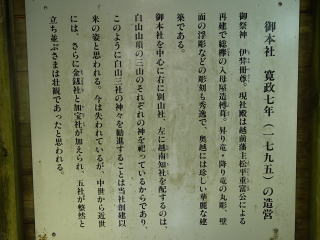 御本社　寛政七年(一七九五)の造営
御祭神　伊弉冊尊。現社殿は越前藩主松平重富公による
再建で総欅の入母屋造榑葺。昇り竜・降り竜の丸彫、壁
面の浮彫などの彫刻も秀逸で、奥越には珍しい華麗な建
築である。
御本社を中心に右に別山社、左に越南知社を配するのは、
白山山頂の三山のそれぞれの神を祀っているからであり、
このように白山三社の神々を勧進することは当社創建以
来の姿と思われる。今は失われているが、中世から近世
には、さらに金劔社と加宝社が加えられ、五社が整然と
立ち並ぶさまは壮観であったと思われる。